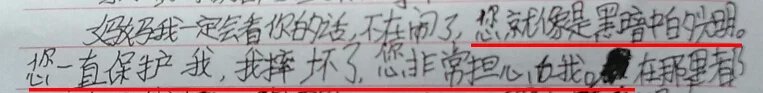 妈妈我一定会看你的话,不在闹了,您就像是黑暗中的光明。
您一直保护我,我摔坏了,您非常担心我。在那里都